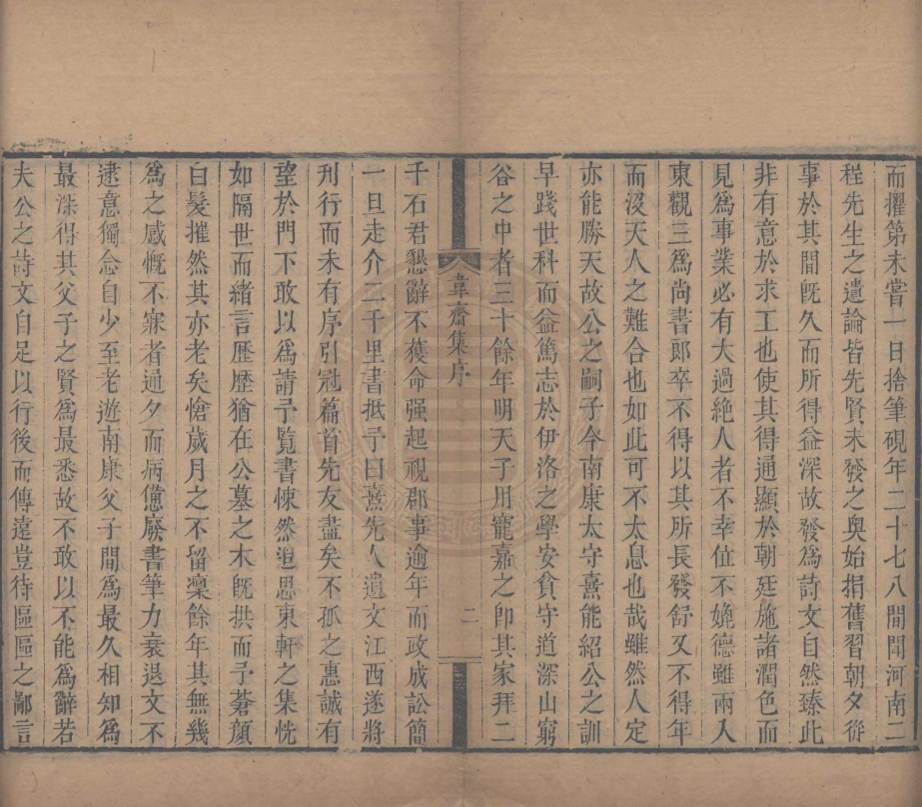 而擢第未嘗一日捨筆硯年二十七八聞河南二
程先生之遺論皆先賢未發之奧始捐舊習朝夕從
事於其間旣久而所得益深故發爲詩文自然臻此
非有意於求工也使其得通顯於朝廷施諸潤色而
見爲事業必有大過絕人者不幸位不媲德雖兩入
東觀三爲尚書郎卒不得以其所長發舒又不得年
而沒天人之難合也如此可不太息也哉雖然人定
亦能勝天故公之嗣子今南康太守熹能紹公之訓
早踐世科而益篤志於伊洛之學安貧守道深山窮
谷之中者三十餘年明天子用寵嘉之卽其家拜二
韋齋集序
二
千石君懇辭不獲命强起視郡事逾年而政成訟簡
一旦走介二千里書抵予曰熹先人遺文江西遂將
刋行而未有序引冠篇首先友盡矣不孤之惠誠有
望於門下敢以爲請予覽書悚然追思東軒之集恍
如隔世而緒言歷歷猶在公墓之木旣拱而予蒼顏
白髮摧然其亦老矣愴歲月之不留凜餘年其無幾
爲之感慨不寐者通夕而病憊廢書筆力衰退文不
逮意獨念自少至老遊南康父子間爲最久相知爲
最深得其父子之賢爲最悉故不敢以不能爲辭若
夫公之詩文自足以行後而傳遠豈待區區之鄙言